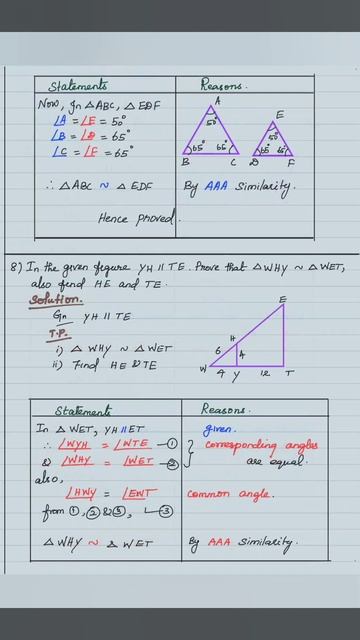 Statements
Reasons.
Now, In △ABC, △EDF
∠A = ∠E = 50°
∠B = ∠D = 65°
∠C = ∠F = 65°
A
50°
65° 65°
B C
E
50°
65° 65°
D F
∴ △ABC ~ △EDF
By AAA Similarity.
Hence proved.
8) In the given figure YH || TE. Prove that △WHY ~ △WET,
also find HE and TE.
Solution.
Gn YH || TE
T.P.
i) △WHY ~ △WET
ii) Find HE & TE
E
H
6
4
W 4 Y 12 T
Statements
Reasons.
In △WET, YH || ET
given.
∴ ∠WYH = ∠WTE —①
& ∠WHY = ∠WET —②
corresponding angles
are equal.
also,
∠HWY = ∠EWT
common angle.
—③
from ①, ② & ③,
△WHY ~ △WET
By AAA Similarity.